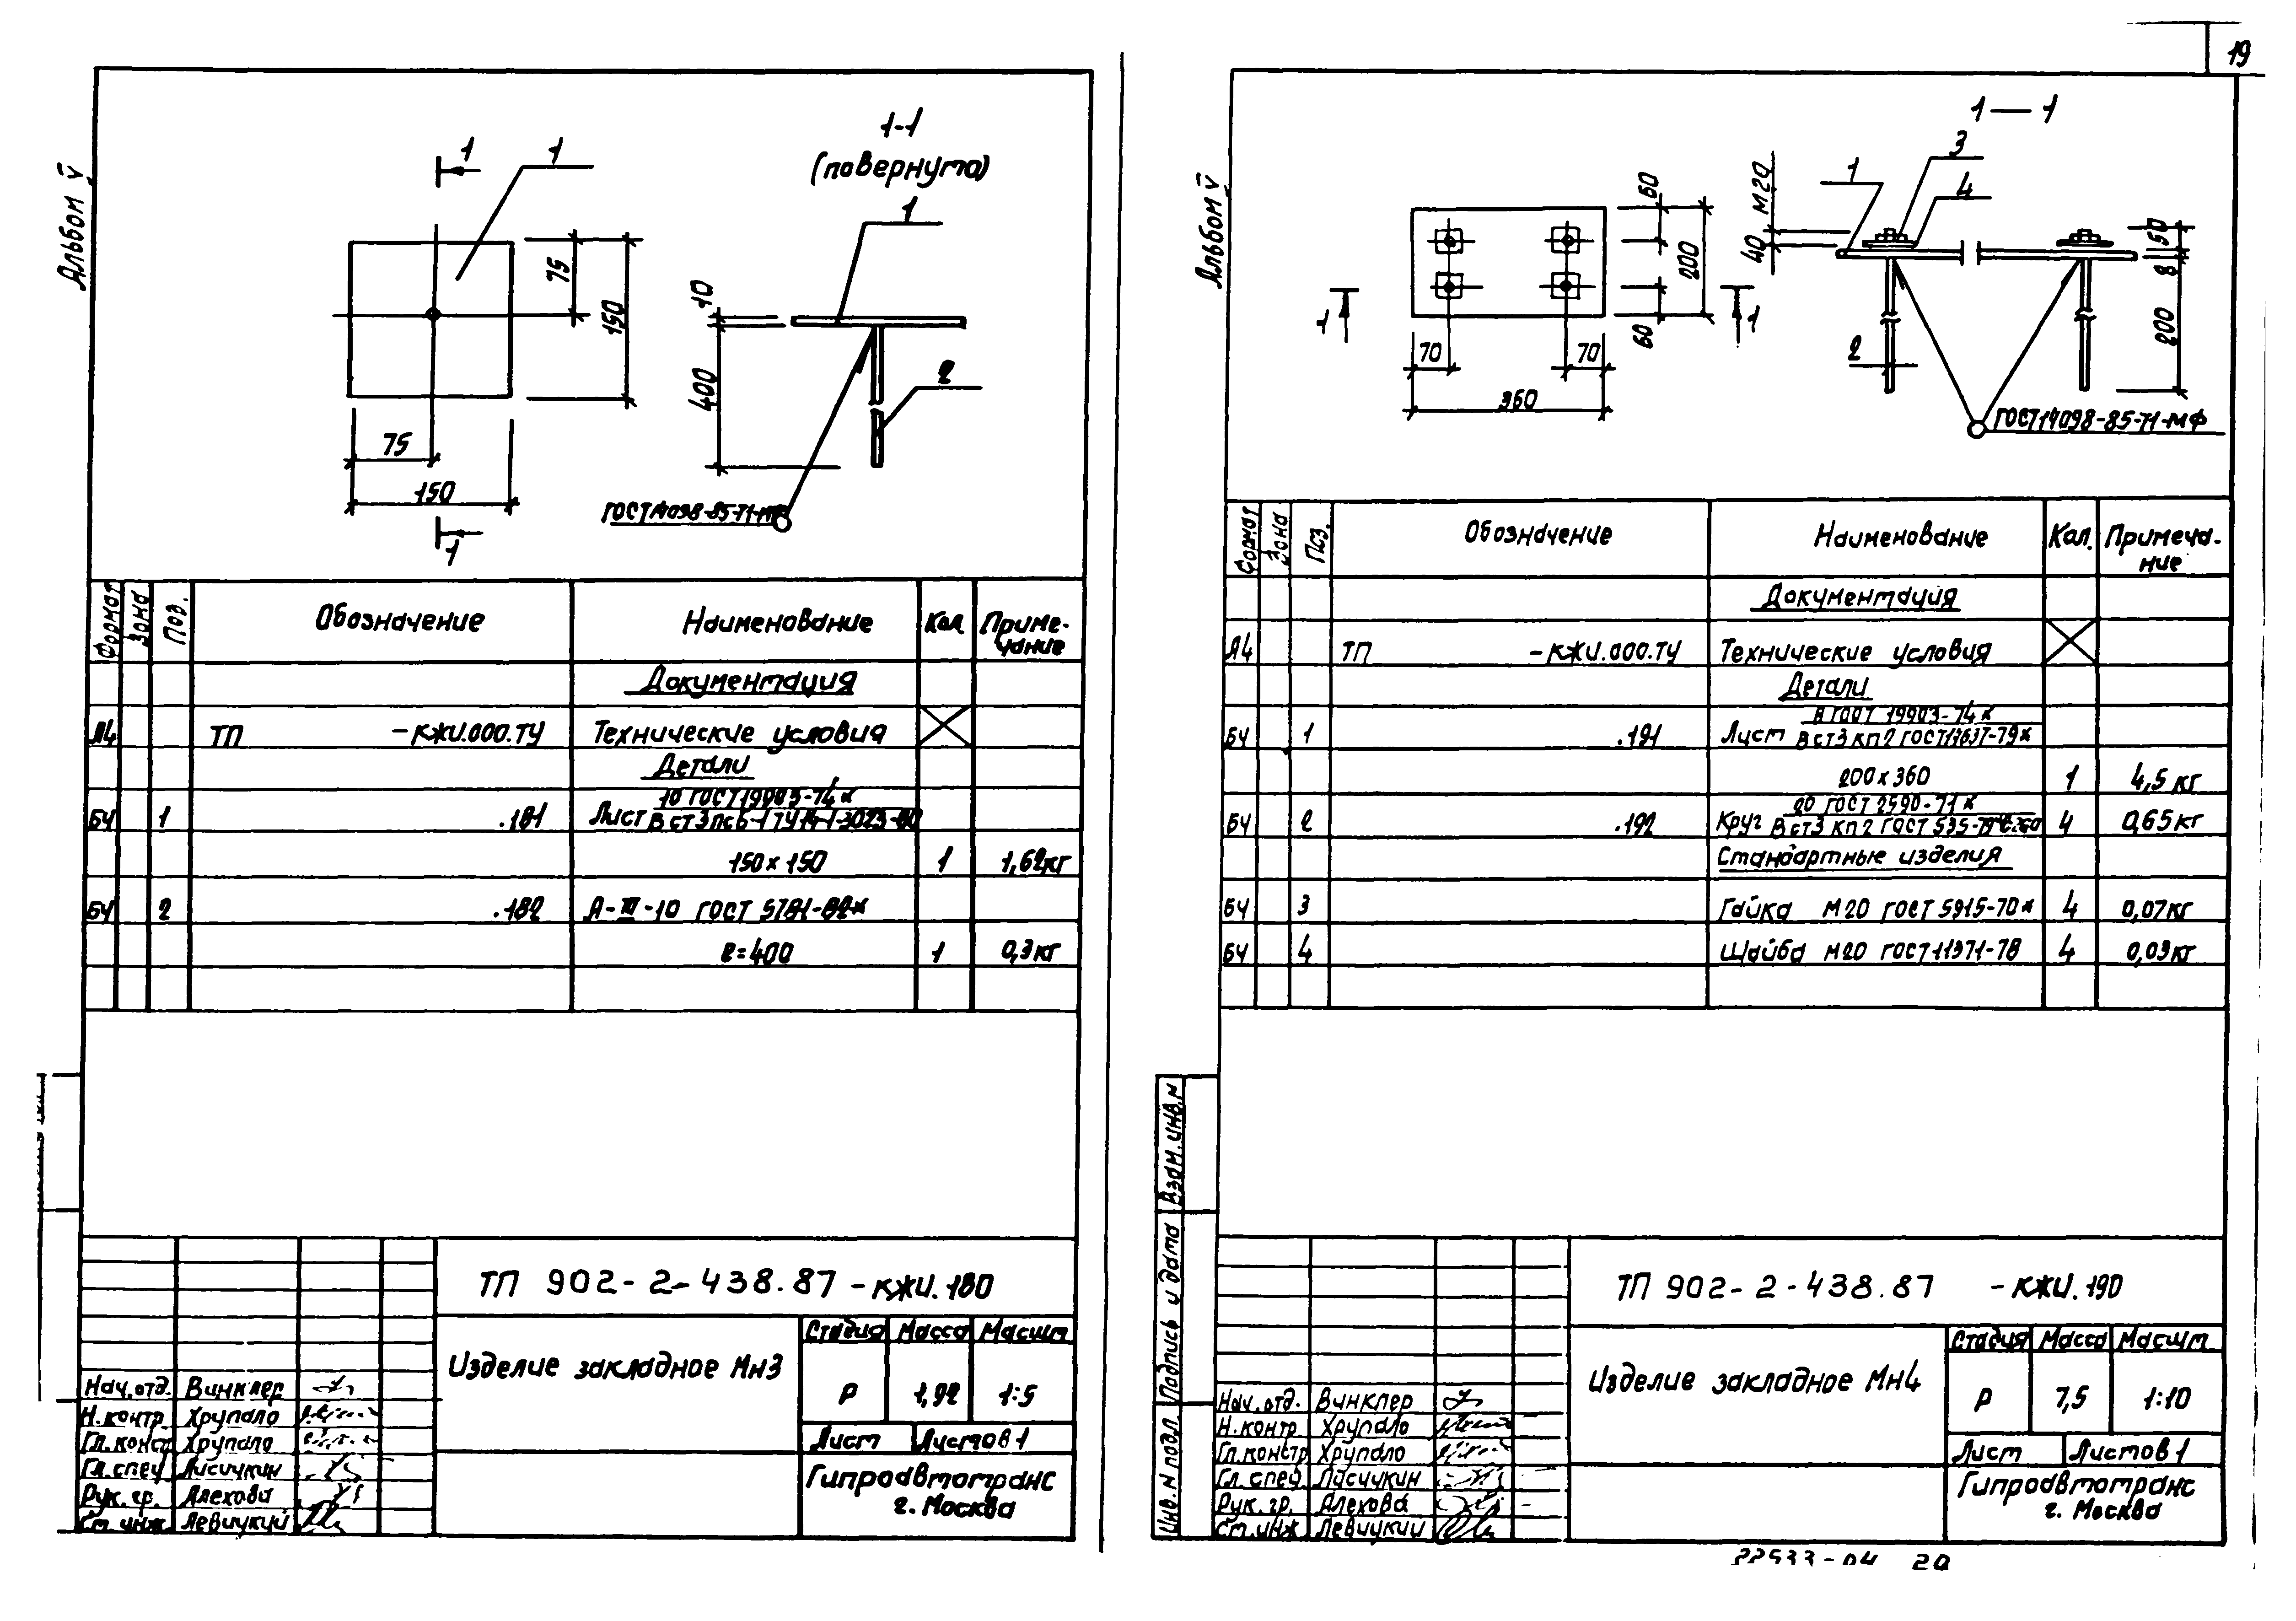 19
Альбом V
1 1
1-1
(повернуто)
1
75
150
10
400
2
75
150
1
ГОСТ14098-85-Т1-МФ
Формат Зона Поз. Обозначение Наименование Кол. Примечание
Документация
А4 ТП -КЖИ.000.ТУ Технические условия
Детали
10 ГОСТ19903-74*
БЧ 1 .181 Лист ВСт3пс6-1 ТУ14-1-3023-80
150×150 1 1,62кг
БЧ 2 .182 А-III-10 ГОСТ 5781-82*
ℓ=400 1 0,3кг
ТП 902-2-438.87 -КЖИ.180
Изделие закладное Мн3
Стадия Масса Масшт
Р 1,92 1:5
Лист Листов 1
Гипроавтотранс
г. Москва
Нач.отд. Винклер
Н.контр Хрупало
Гл.конст Хрупало
Гл.спец. Лисичкин
Рук.гр. Алехова
Ст.инж. Левицкий
Альбом V
1—1
3
1
4
М20
40
50
8
200
2
60
200
60
1 1
70 70
360
ГОСТ14098-85-Т1-МФ
Формат Зона Поз. Обозначение Наименование Кол. Примечание
Документация
А4 ТП -КЖИ.000.ТУ Технические условия
Детали
8 ГОСТ 19903-74*
БЧ 1 .191 Лист ВСт3кп2 ГОСТ14637-79*
200×360 1 4,5кг
20 ГОСТ 2590-71*
БЧ 2 .192 Круг ВСт3кп2 ГОСТ 535-79 4 0,65кг
Стандартные изделия
БЧ 3 Гайка М20 ГОСТ 5915-70* 4 0,07кг
БЧ 4 Шайба М20 ГОСТ11371-78 4 0,03кг
Взам.инв.N
Подпись и дата
Инв.N подл.
ТП 902-2-438.87 -КЖИ.190
Изделие закладное Мн4
Стадия Масса Масшт
Р 7,5 1:10
Лист Листов 1
Гипроавтотранс
г. Москва
Нач.отд. Винклер
Н.контр Хрупало
Гл.констр Хрупало
Гл.спец. Лисичкин
Рук.гр. Алехова
Ст.инж. Левицкий
22533-04 20